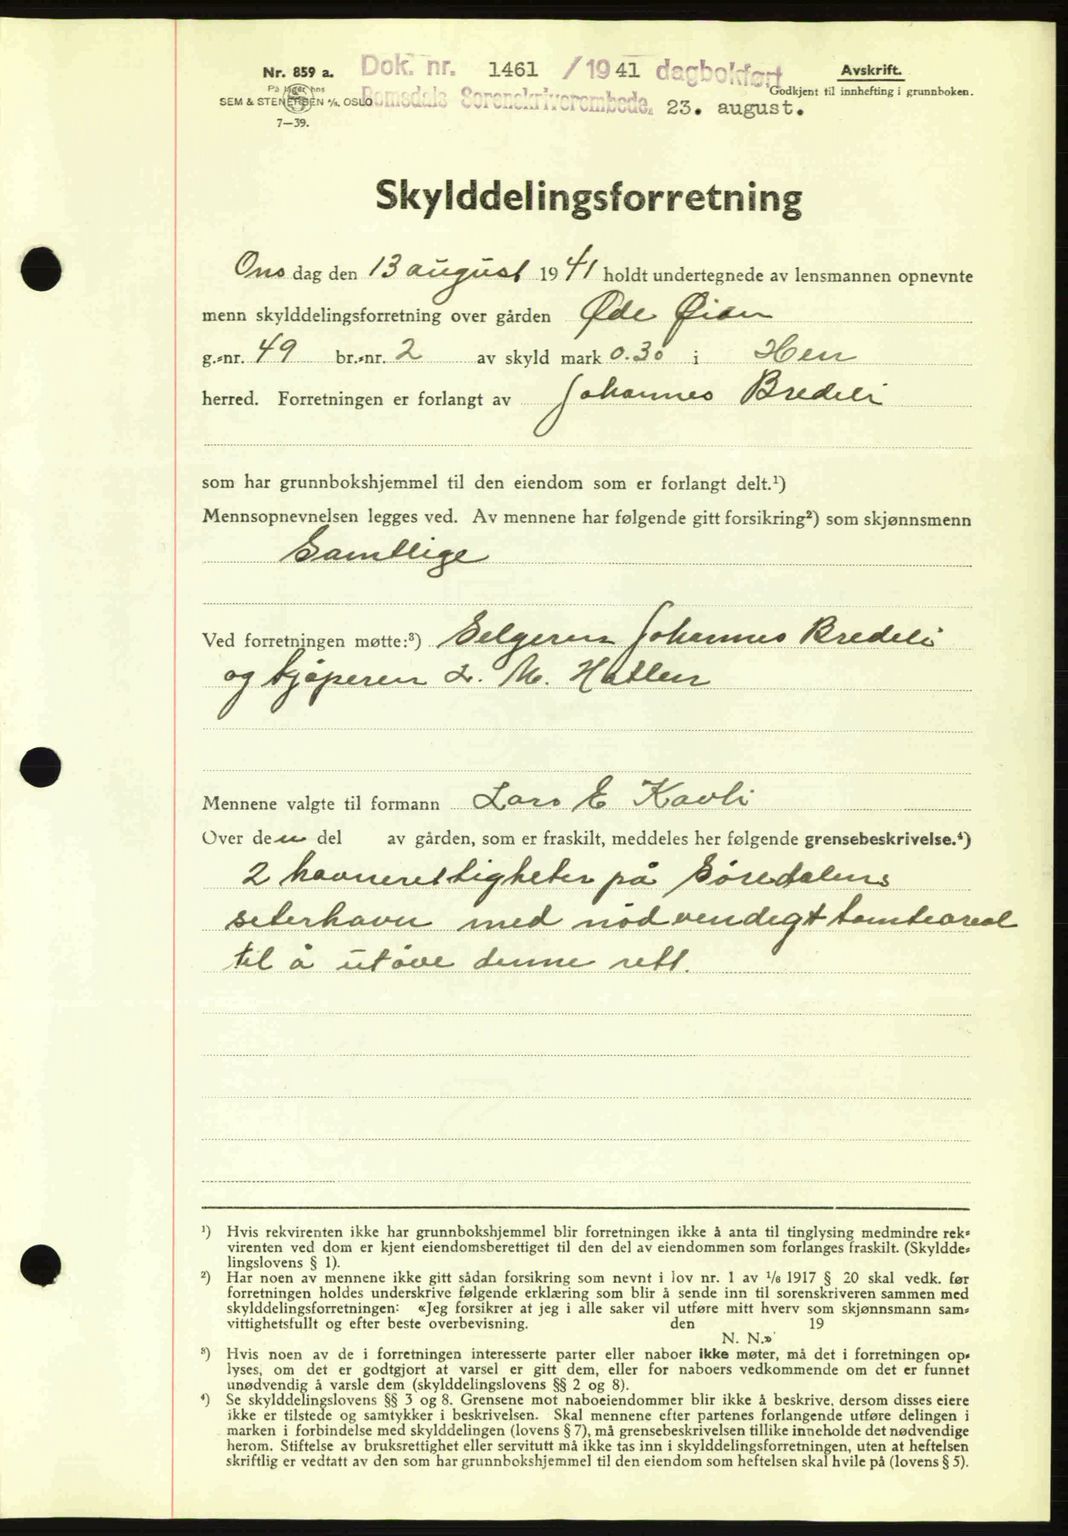 Nr. 859 a.
På lager hos
SEM & STENERSEN A/S. OSLO
7—39.
Dok. nr. 1461 /1941 dagbokført
Romsdals Sorenskriverembede, 23. august.
Avskrift.
Godkjent til innhefting i grunnboken.
Skylddelingsforretning
Ons dag den 13 august 1941 holdt undertegnede av lensmannen opnevnte
menn skylddelingsforretning over gården Øde Øien
g.-nr. 49 br.-nr. 2 av skyld mark 0.30 i Hen
herred. Forretningen er forlangt av Johannes Bredeli
som har grunnbokshjemmel til den eiendom som er forlangt delt.¹)
Mennsopnevnelsen legges ved. Av mennene har følgende gitt forsikring²) som skjønnsmenn
Samtlige
Ved forretningen møtte:³) Selgeren Johannes Bredeli
og kjøperen L. M. Hatlen
Mennene valgte til formann Lars E Kavli
Over den del av gården, som er fraskilt, meddeles her følgende grensebeskrivelse.⁴)
2 havnerettigheter på Søredalens
seterhavn med nødvendigt tomteareal
til å utøve denne rett.
¹) Hvis rekvirenten ikke har grunnbokshjemmel blir forretningen ikke å anta til tinglysing medmindre rek-
virenten ved dom er kjent eiendomsberettiget til den del av eiendommen som forlanges fraskilt. (Skyldde-
lingslovens § 1).
²) Har noen av mennene ikke gitt sådan forsikring som nevnt i lov nr. 1 av 1/6 1917 § 20 skal vedk. før
forretningen holdes underskrive følgende erklæring som blir å sende inn til sorenskriveren sammen med
skylddelingsforretningen: «Jeg forsikrer at jeg i alle saker vil utføre mitt hverv som skjønnsmann sam-
vittighetsfullt og efter beste overbevisning. den 19
N. N.»
³) Hvis noen av de i forretningen interesserte parter eller naboer ikke møter, må det i forretningen op-
lyses, om det er godtgjort at varsel er gitt dem, eller for naboers vedkommende om det er funnet
unødvendig å varsle dem (skylddelingslovens §§ 2 og 8).
⁴) Se skylddelingslovens §§ 3 og 8. Grensene mot naboeiendommer blir ikke å beskrive, dersom disses eiere
ikke er tilstede og samtykker i beskrivelsen. Skal mennene efter partenes forlangende utføre delingen i
marken i forbindelse med skylddelingen (lovens § 7), må grensebeskrivelsen tillike inneholde det nødvendige
herom. Stiftelse av bruksrettighet eller servitutt må ikke tas inn i skylddelingsforretningen, uten at heftelsen
skriftlig er vedtatt av den som har grunnbokshjemmel til den eiendom som heftelsen skal hvile på (lovens § 5).